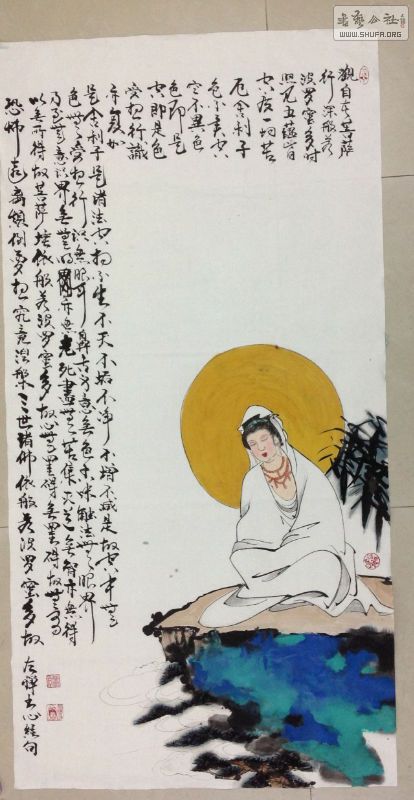 书艺公社
WWW.SHUFA.ORG
观自在菩萨
行深般若
波罗蜜多时
照见五蕴皆
空度一切苦
厄舍利子
色不异空
空不异色
色即是
空即是色
受想行识
亦复如
是舍利子是诸法空相不生不灭不垢不净不增不减是故空中无
色无受想行识无眼耳鼻舌身意无色味触法无眼界
乃至无意识界无无明亦无老死尽无苦集灭道无智亦无得
以无所得故菩萨埵依般若波罗蜜多故心无罣碍无罣碍故无有
恐怖远离颠倒梦想究竟涅槃三世诸佛依般若波罗蜜多故
禅书心经句